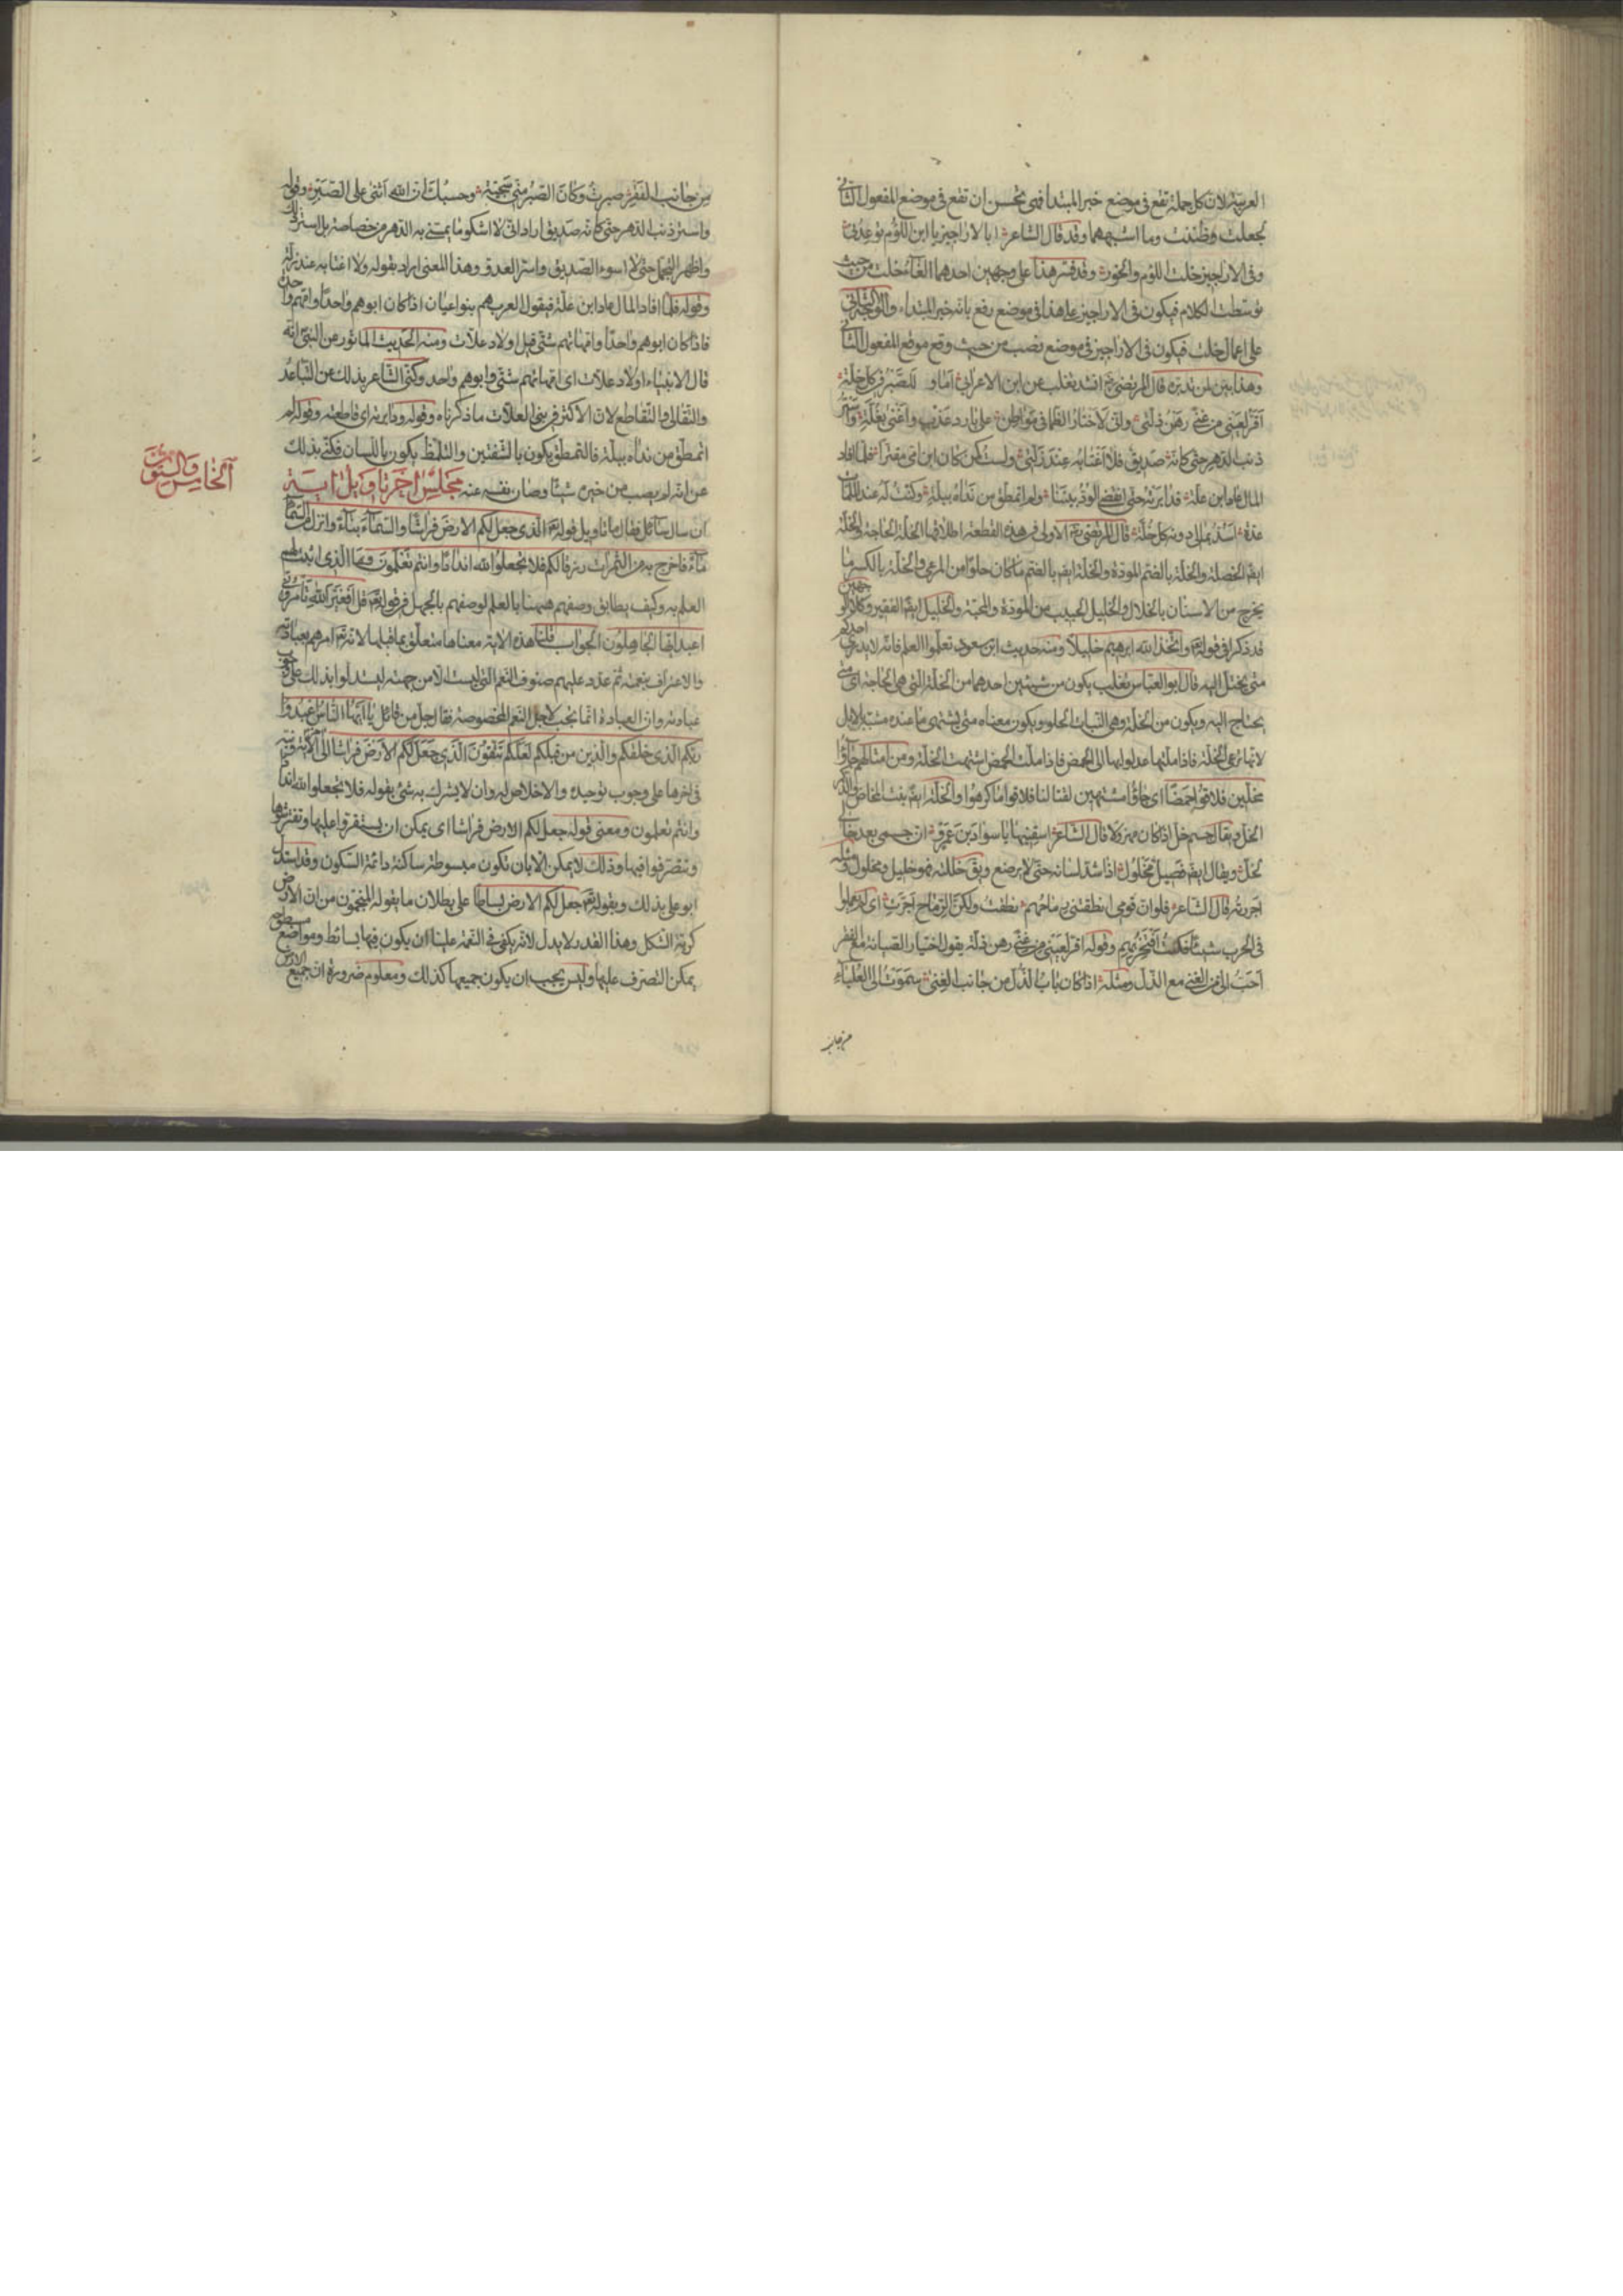 العربية لان كل جملة تقع فى موضع خبر المبتدا فهى تحسن ان تقع فى موضع المفعول الثانى
لجعلت وظننت وما اشبههما وقد قال الشاعر ابالاراجيز يا ابن اللؤم توعدنى
وفى الاراجيز خلت اللؤم والخور وقد فسر هذا على وجهين احدهما الغاء خلت من حيث
توسطت الكلام فيكون فى الاراجيز على هذا فى موضع رفع بانه خبر المبتداء والوجه الثانى
على اعمال خلت فيكون فى الاراجيز فى موضع نصب من حيث وقع موقع المفعول الثانى
وهذا بين لمن تدبره قال المرتضى ره انشد ثعلب عن ابن الاعرابى اما و للصبر فى كل خلة
اقر لعينى من غنى رهن ذلتى وانى لاختار الظما فى مواطن على بارد عذب واغنى بغلة واستر
ذنب الدهر حتى كانه صديق فلا اغتابه عند زلتى ولست كمن كان ابن امى مقترا فلما افاد
المال عاد ابن علة فدابرته حتى انقضى الود بيننا ولم اتمطق من نداه ببلة وكنت له عند الملمات
عدة اسد بمالى دونه كل خلة قال المرتضى ره الاولى فى هذه القطعة اطلاقها الخلة الحاجة والخلة
ايضا الخصلة والخلة بالضم المودة والخلة ايضا بالضم ما كان حلوا من المرعى والخلة بالكسر ما
يخرج من الاسنان بالخلال والخليل الحبيب من المودة والمحبة والخليل ايضا الفقير وكلا الوجهين
قد ذكرا فى قوله تعالى واتخذ الله ابرهيم خليلا ومنه حديث ابن مسعود تعلموا العلم فانه لا يدرى احدكم
متى يختل اليه قال ابو العباس ثعلب يكون من شيئين احدهما من الخلة التى هى الحاجة اى متى
يحتاج اليه ويكون من الخلة وهى النبات الحلو ويكون معناه متى يشتهى ما عنده مشبه بالابل
لانها ترعى الخلة فاذا ملتها عدلوا بها الى الحمض فاذا ملت الحمض اشتهت الخلة ومن امثالهم جاؤا
مخلين فلاقوا حمضا اى جاؤا مشتهين لقتالنا فلاقوا ما كرهوا والخلة ايضا بنت المخاض والذكر
الخل ويقال جسم خل اذا كان مهزولا قال الشاعر اسقنيها يا سواد بن عمرو ان جسمى بعد خالى
لخل ويقال ايضا فصيل مخلول اذا شد لسانه حتى لا يرضع ويق خللته فهو خليل ومخلول ومثله
اجررته قال الشاعر فلو ان قومى انطقتنى رماحهم نطقت ولكن الرماح اجرت اى لم يعملوا
فى الحرب شيئا فكنت افتخر بهم وقوله اقر لعينى من غنى رهن ذلة يقول اختيار الصيانة مع الفقر
احب الى من الغنى مع الذل ومثله اذا كان باب الذل من جانب الغنى سموت الى العلياء
من جانب
من جانب الفقر صبرت وكان الصبر منى سجية وحسبك ان الله اثنى على الصبر وقوله
واستر ذنب الدهر حتى كانه صديق اراد انى لا اشكو ما يمسنى به الدهر من خصاصة بل استر ذلك
واظهر التجمل حتى لا اسوء الصديق واسر العدو وهذا المعنى اراد بقوله ولا اغتابه عند زلة
وقوله فلما افاد المال عاد ابن علة فيقول العرب هم بنو اعيان اذا كان ابوهم واحدا وامهم واحدة
فاذا كان ابوهم واحدا وامهاتهم شتى قيل اولاد علات ومنه الحديث الماثور عن النبى انه
قال الانبياء اولاد علات اى امهاتهم شتى وابوهم واحد وكنى الشاعر بذلك عن التباعد
والتقالى والتقاطع لان الاكثر فى بنى العلات ما ذكرناه وقوله ودابرته اى قاطعته وقوله لم
اتمطق من نداه ببلة فالتمطق يكون بالشفتين والتلمظ يكون باللسان فكنى بذلك
عن انه لم يصب من خيره شيئا وصان نفسه عنه مجلس اخر تاويل اية
الخامس والستون
ان سال سائل فقال ما تاويل قوله تعالى الذى جعل لكم الارض فراشا والسماء بناء وانزل من السماء
ماء فاخرج به من الثمرات رزقا لكم فلا تجعلوا لله اندادا وانتم تعلمون وما الذى اثبت لهم
العلم به وكيف يطابق وصفهم ههنا بالعلم لوصفهم بالجهل فى قوله تعالى قل افغير الله تامرونى
اعبد ايها الجاهلون الجواب قلنا هذه الاية معناها متعلق بما قبلها لانه تعالى امرهم بعبادته
والاعتراف بنعمته ثم عدد عليهم صنوف النعم التى ليست الا من جهته ليستدلوا بذلك على وجوب
عبادته وان العبادة انما تجب لاجل النعم المخصوصة فقال جل من قائل يا ايها الناس اعبدوا
ربكم الذى خلقكم والذين من قبلكم لعلكم تتقون الذى جعل لكم الارض فراشا الى اخر الاية ونبه
فى اخرها على وجوب توحيده والاخلاص له وان لا يشرك به شئ بقوله فلا تجعلوا لله اندادا
وانتم تعلمون ومعنى قوله جعل لكم الارض فراشا اى يمكن ان يستقروا عليها وتفترشوها
وتتصرفوا فيها وذلك لا يمكن الا بان تكون مبسوطة ساكنة دائمة السكون وقد استدل
ابو على بذلك وبقوله تعالى جعل لكم الارض بساطا على بطلان ما يقوله المنجمون من ان الارض
كرية الشكل وهذا القدر لا يدل لانه يكفى فى النعمة علينا ان يكون فيها بسائط ومواضع مسطوحة
يمكن التصرف عليها وليس يجب ان يكون جميعها كذلك ومعلوم ضرورة ان جميع الارض